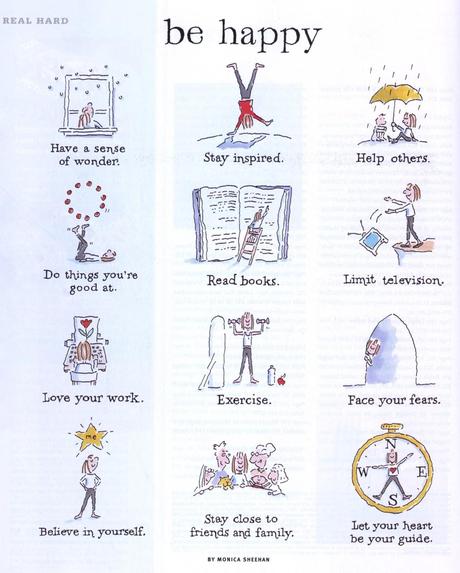 REAL HARD
be happy
Have a sense
of wonder.
Stay inspired.
Help others.
Do things you're
good at.
Read books.
Limit television.
Love your work.
Exercise.
Face your fears.
me
Believe in yourself.
Stay close to
friends and family.
N
W
E
S
Let your heart
be your guide.
BY MONICA SHEEHAN